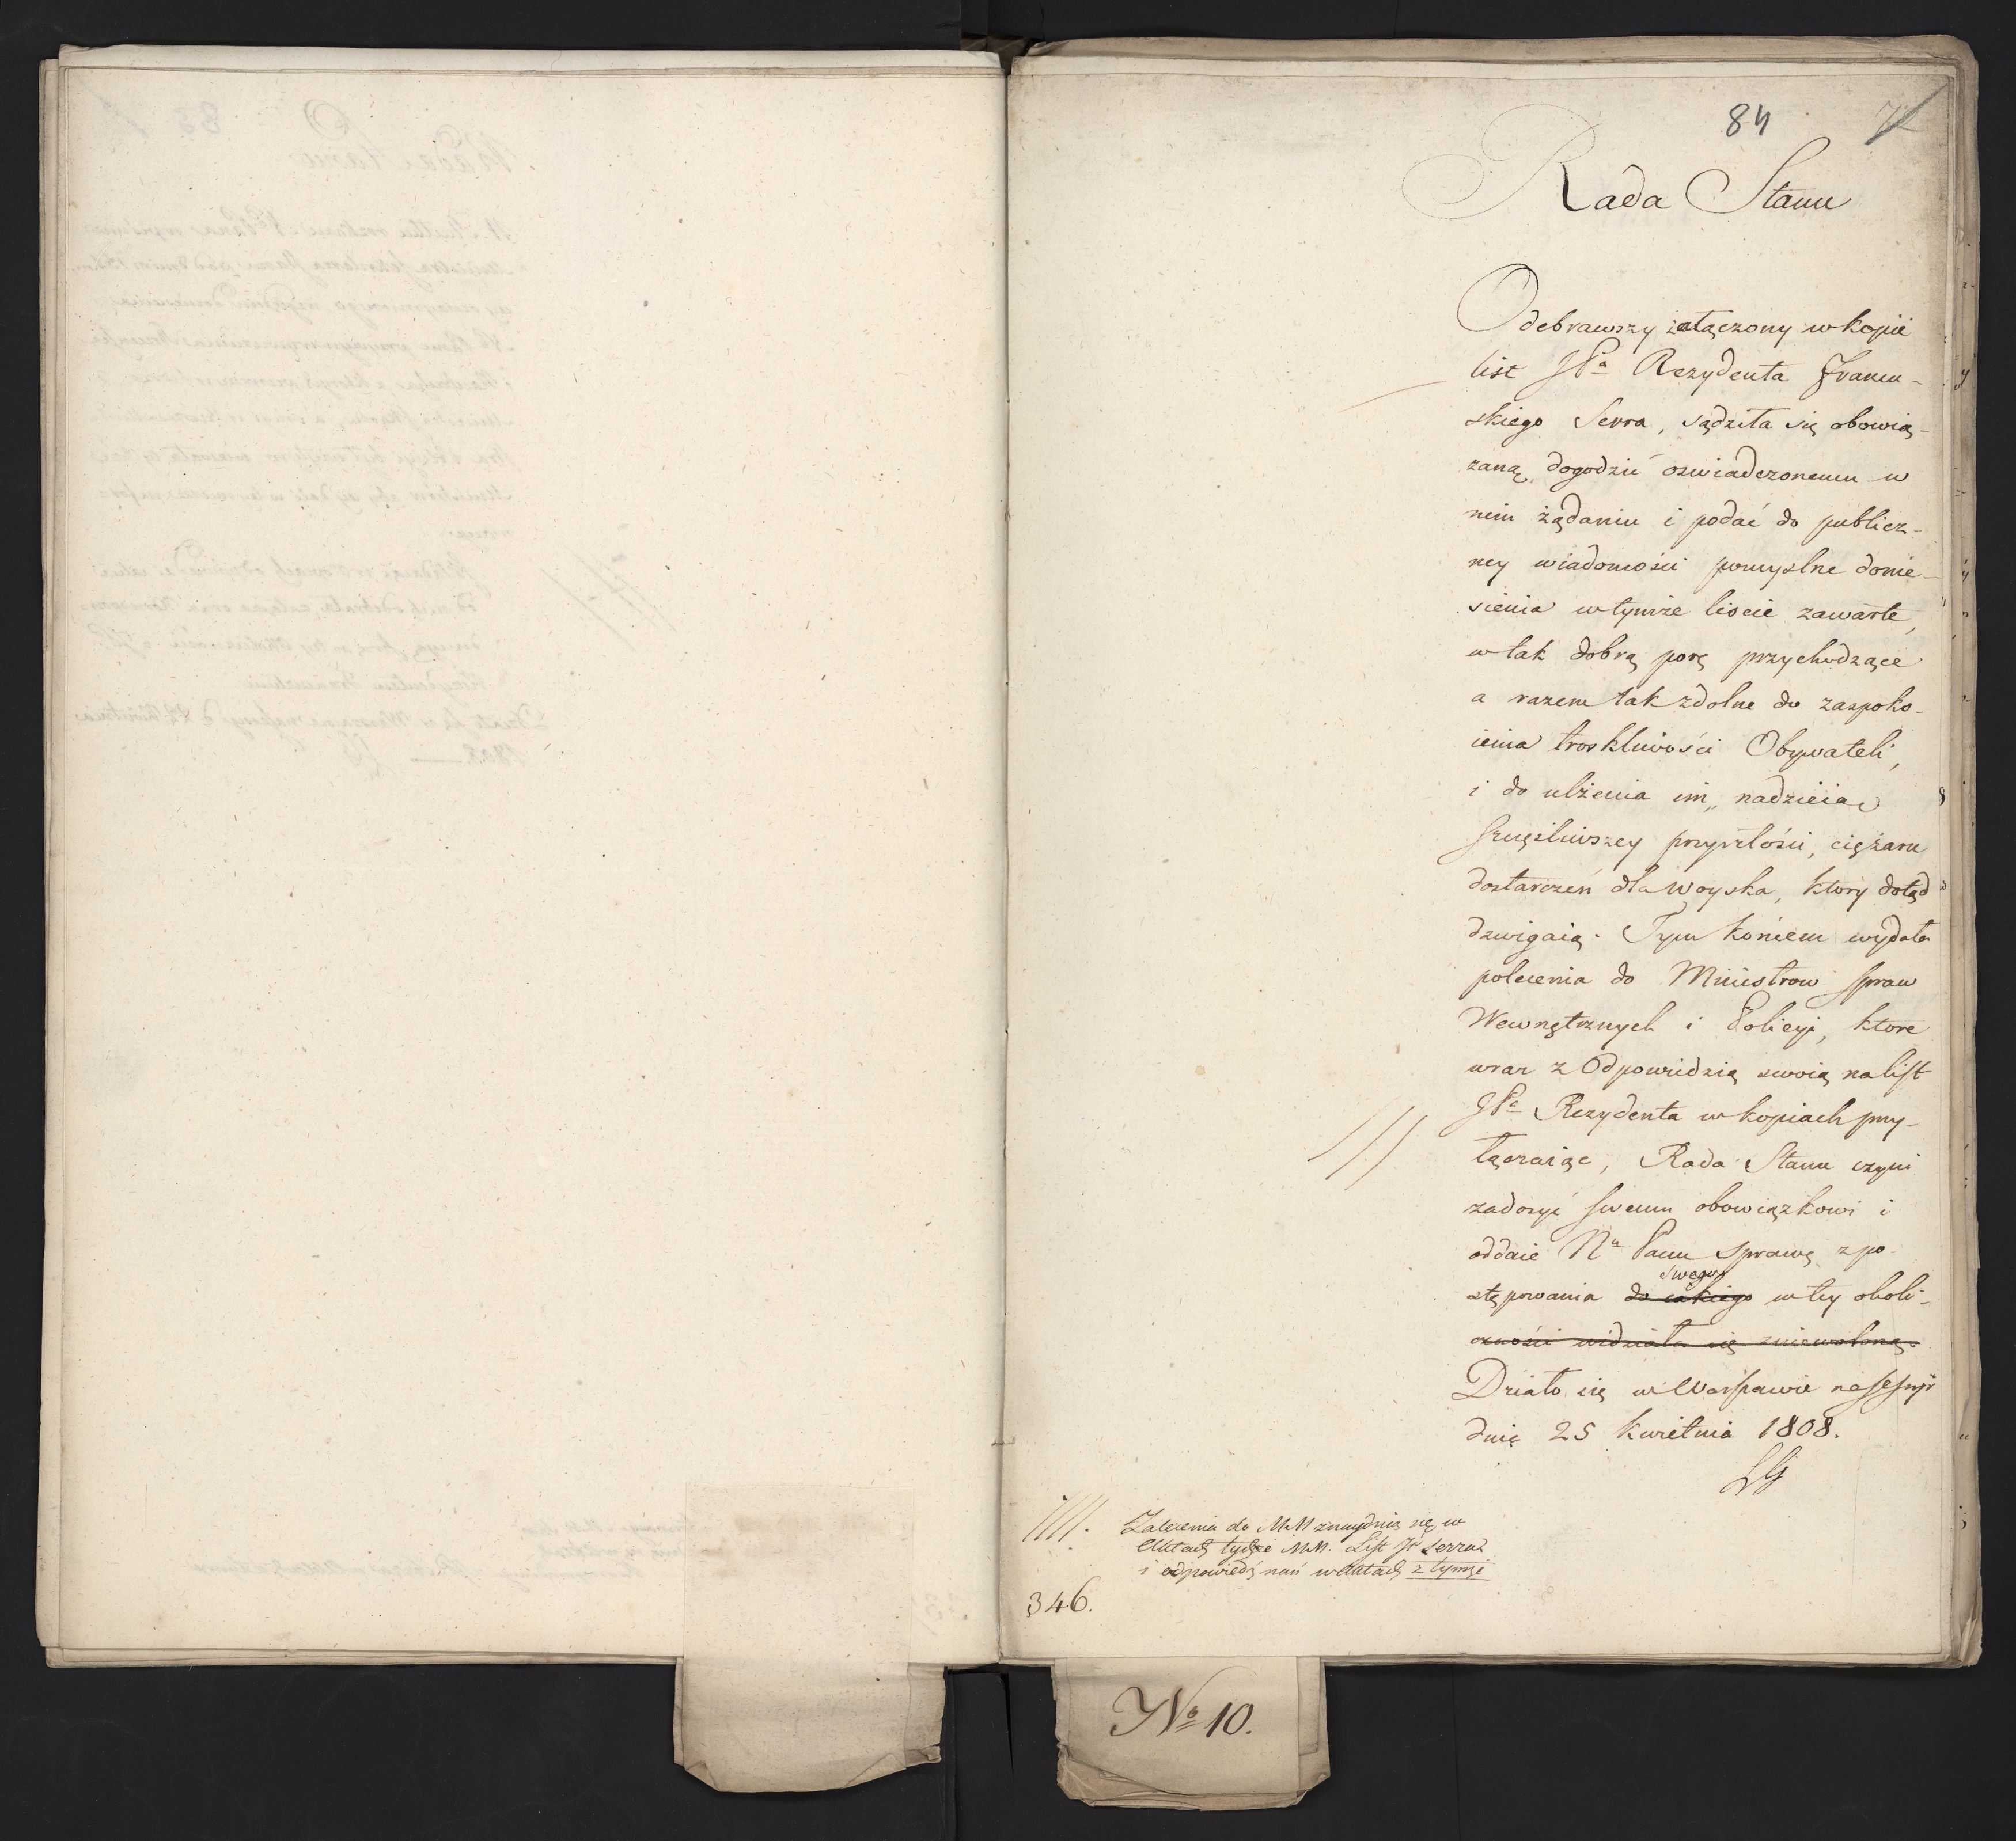 84
Rada Stanu
Odebrawszy załączony w kopii
list JPa Rezydenta Francu-
skiego Serra, sądziła się obowią-
zaną dogodzić oswiadczonemu w
nim żądaniu i podać do publicz-
ney wiadomosci pomyslne donie-
sienia w tymże liscie zawarte,
w tak dobrą porę przychodzące
a razem tak zdolne do zaspoko-
ienia troskliwości Obywateli,
i do ulżenia im, nadzieią
szczęśliwszey przyszłości, ciężaru
dostarczeń dla Woyska, ktory dotąd
dzwigaią. Tym końcem wydała
polecenia do Ministrow Spraw
Wewnętrznych i Policyi, ktore
wraz z Odpowiedzią swoią na list
JPa Rezydenta w kopiach przy-
łączaiąc, Rada Stanu czyni
zadosyć swemu obowiązkowi i
oddaie Nu Panu sprawę z po-
swego
stępowania do iakiego w tey okoli-
czności widziała się zniewoloną.
Działo się w Warszawie na sessyi
dnia 25 kwietnia 1808.
LG
////. Zalecenia do MM znaydują się w
Aktach tychże MM. List JP Serra
i odpowiedź nań w Aktach z tymże
346.
No 10.